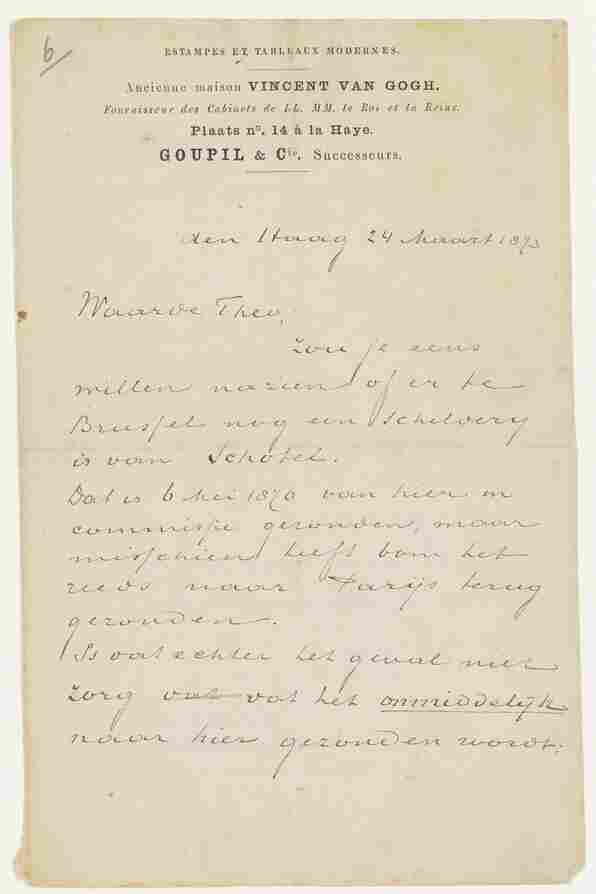 6
ESTAMPES ET TABLEAUX MODERNES.
Ancienne maison VINCENT VAN GOGH.
Fournisseur des Cabinets de LL. MM. le Roi et la Reine.
Plaats nº. 14 à la Haye.
GOUPIL & Cie. Successeurs.
den Haag 24 Maart 1873
Waarde Theo,
Zou je eens
willen nazien of er te
Brussel nog een schilderij
is van Schotel.
Dat is 6 Mei 1870 van hier in
commissie gezonden, maar
misschien heeft bom het
reeds naar Parijs terug
gezonden.
Is dat echter het geval niet
zorg dat dat het onmiddelijk
naar hier gezonden wordt.